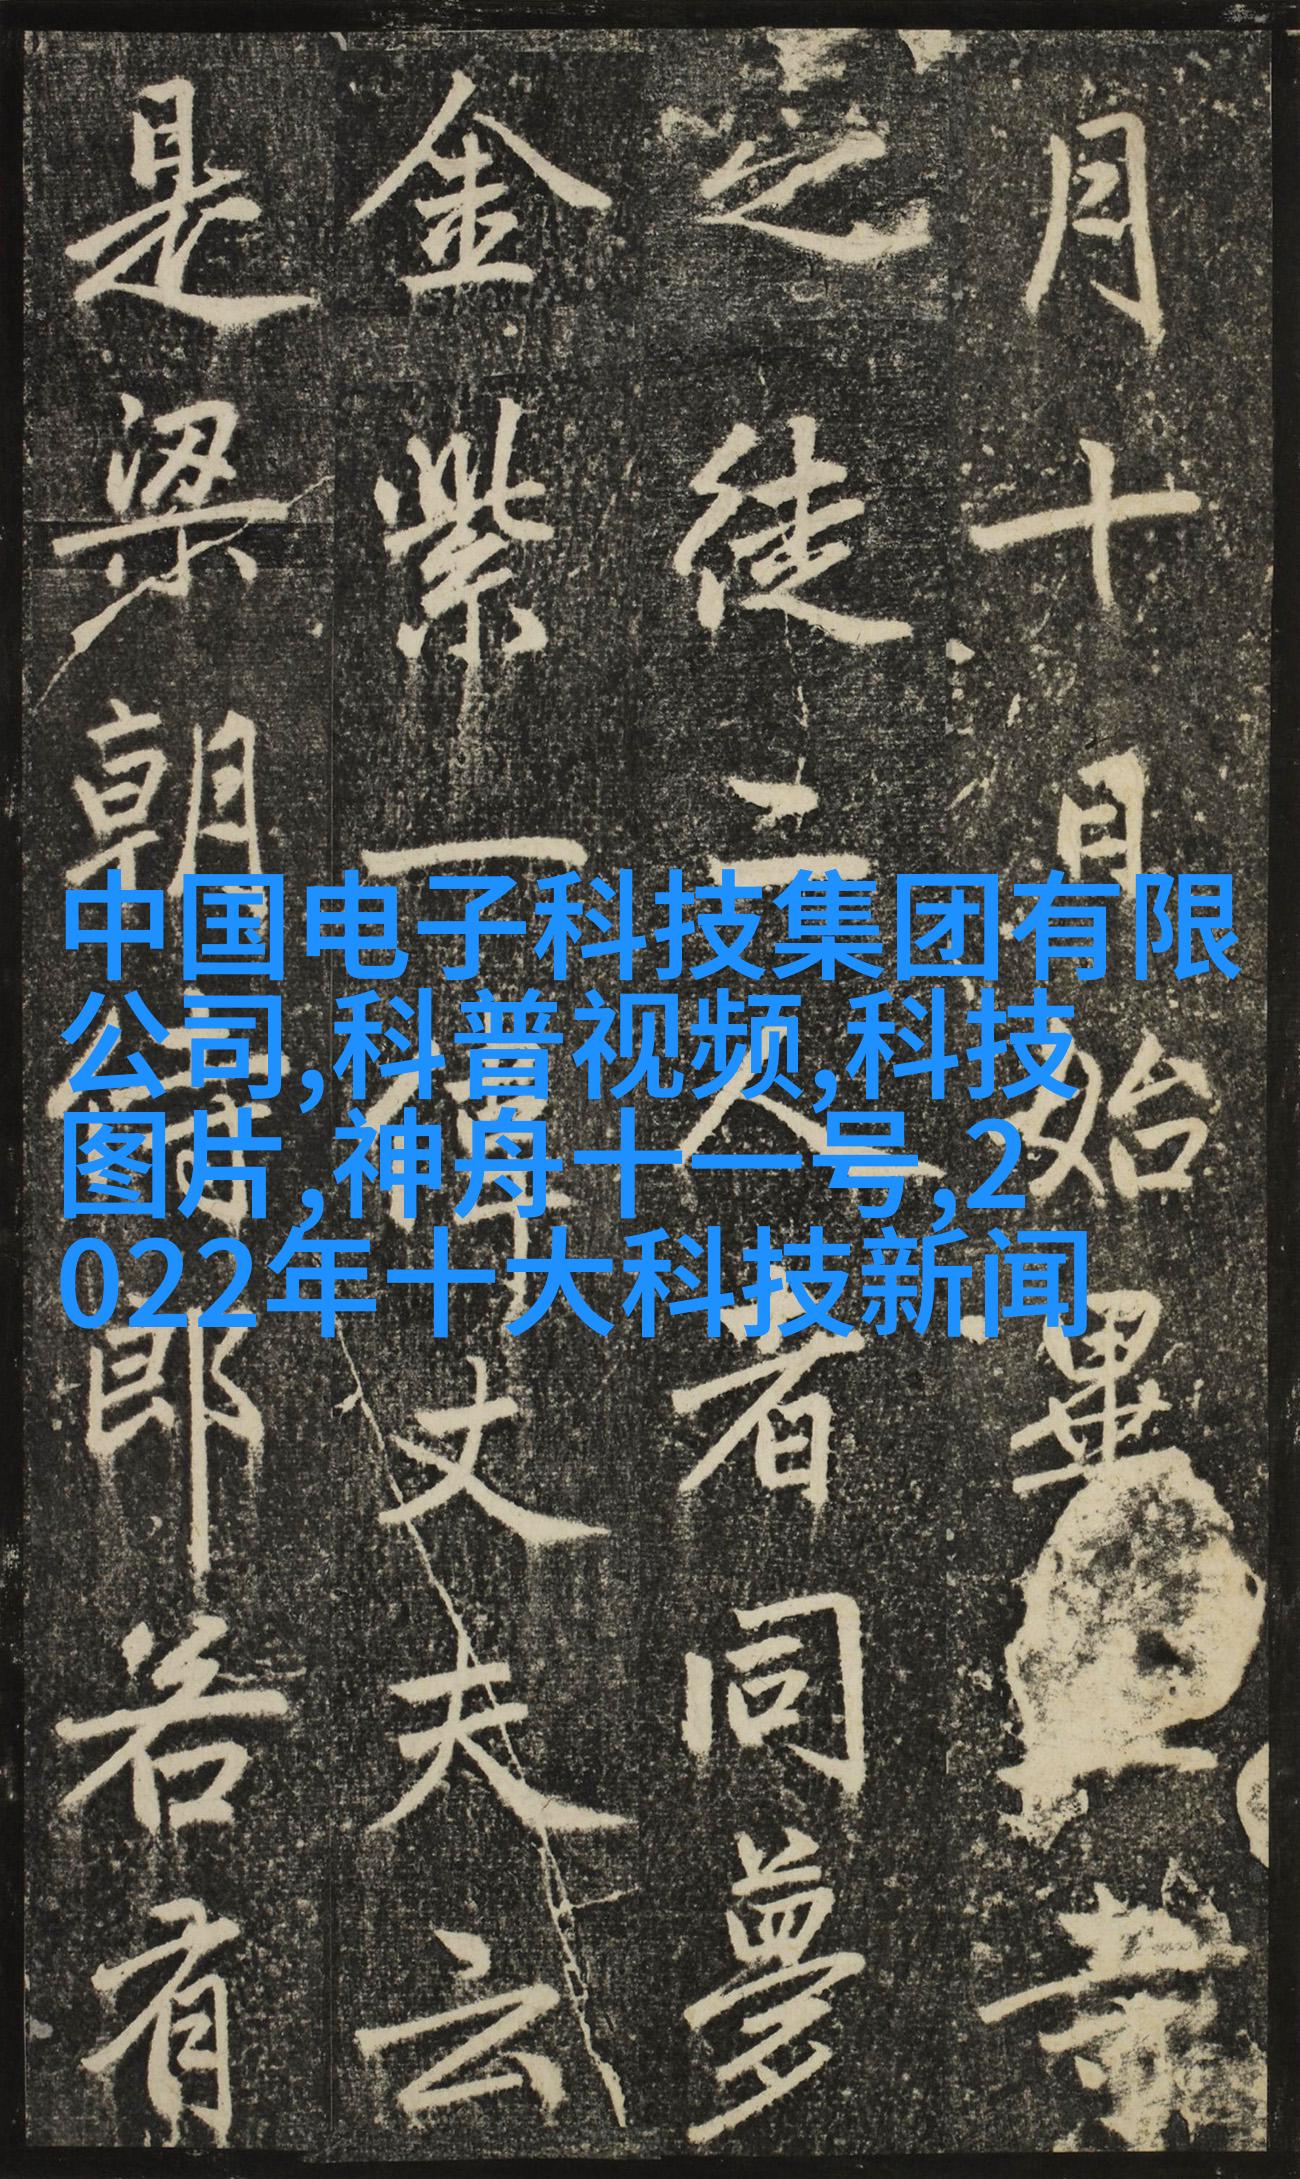 月十月始畢
之徒二人者同夢
金紫一偉丈夫云
是梁朝侍郎若有
中国电子科技集团有限
公司,科普视频,科技
图片,神舟十一号,2
022年十大科技新闻